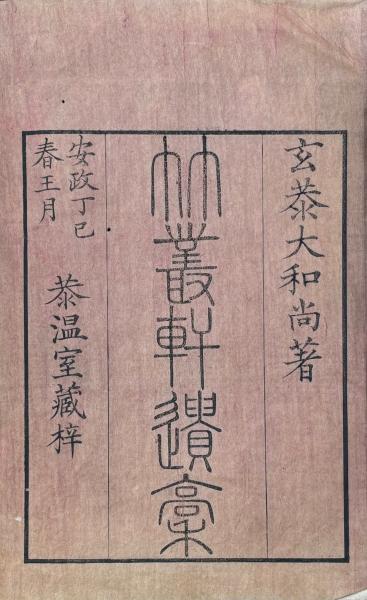 玄㳟大和尚著
竹叢軒遺稾
安政丁巳
春王月
㳟温室藏梓